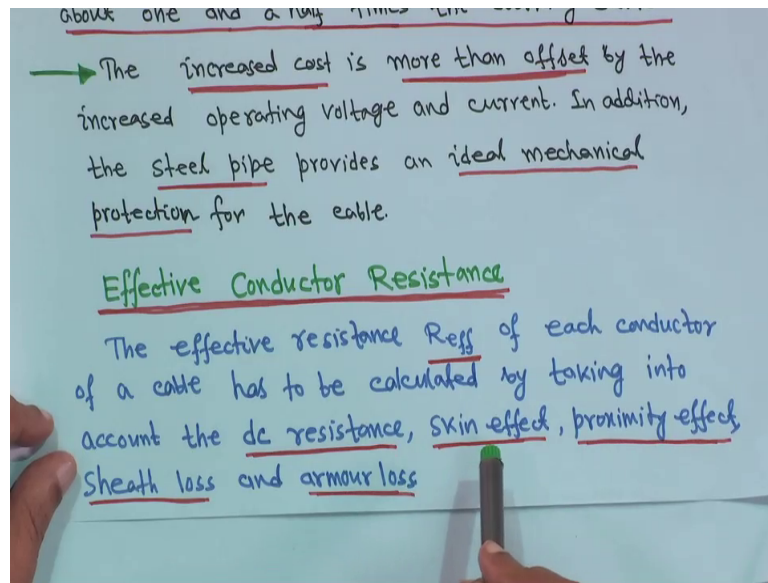 about one and a half times the
→ The increased cost is more than offset by the
increased operating voltage and current. In addition,
the steel pipe provides an ideal mechanical
protection for the cable.
Effective Conductor Resistance
The effective resistance Reff of each conductor
of a cable has to be calculated by taking into
account the dc resistance, skin effect, proximity effect,
Sheath loss and armour loss